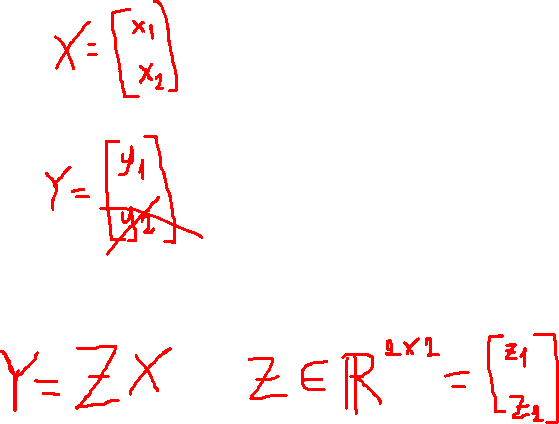 X = [x₁ x₂]
Y = [y₁ y₂]
Y = ZX Z ∈ ℝ²ˣ² = [z₁ z₂]